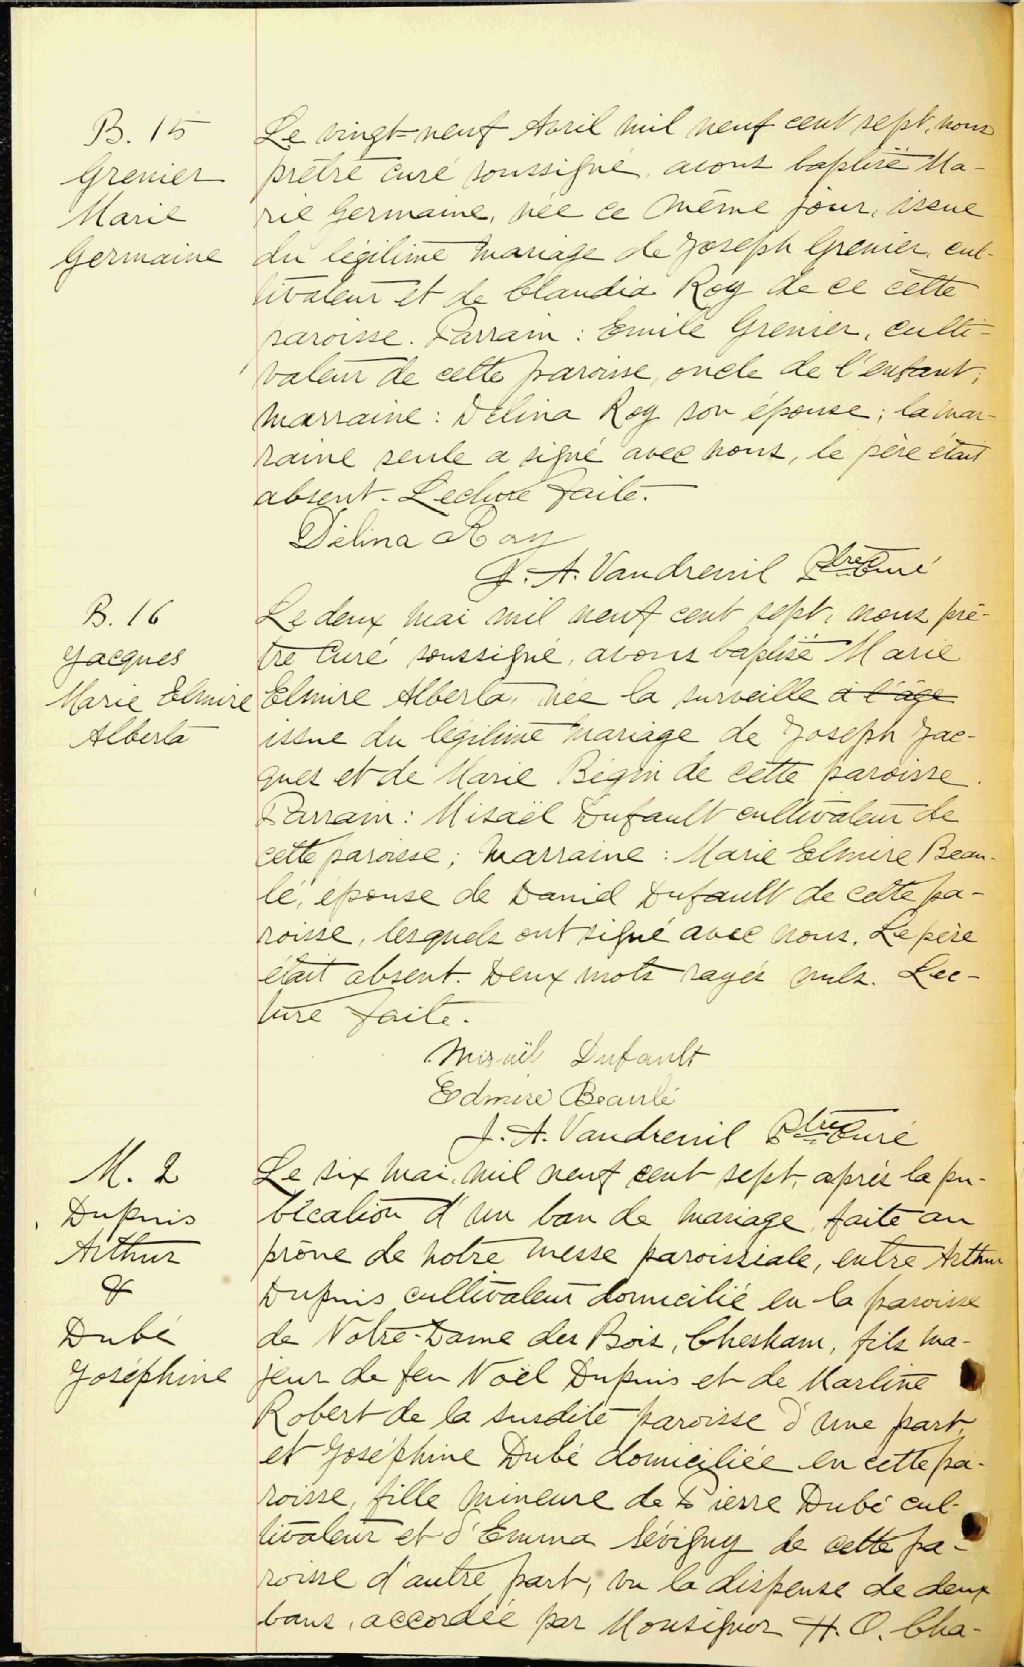 B. 15
Grenier
Marie
Germaine
Le vingt-neuf Avril mil neuf cent sept, nous
prêtre curé soussigné, avons baptisé Ma-
rie Germaine, née ce même jour, issue
du légitime mariage de Joseph Grenier, cul-
tivateur et de Claudia Roy de ce cette
paroisse. Parrain : Emile Grenier, culti-
vateur de cette paroisse, oncle de l'enfant;
marraine : Délina Roy son épouse; la mar-
raine seule a signé avec nous, le père était
absent. Lecture faite.
Délina Roy
J. A. Vaudreuil Ptre Curé
B. 16
Jacques
Marie Elmire
Alberta
Le deux mai mil neuf cent sept, nous prê-
tre curé soussigné, avons baptisé Marie
Elmire Alberta, née la surveille à l'âge
issue du légitime mariage de Joseph Jac-
ques et de Marie Bégin de cette paroisse.
Parrain : Misaël Dufault cultivateur de
cette paroisse; marraine : Marie Elmire Beau-
lé, épouse de Daniel Dufault de cette pa-
roisse, lesquels ont signé avec nous. Le père
était absent. Deux mots rayés nuls. Lec-
ture faite.
Misaël Dufault
Edmire Beaulé
J. A. Vaudreuil Ptre Curé
M. 2
Dupuis
Arthur
&
Dubé
Joséphine
Le six mai, mil neuf cent sept, après la pu-
blication d'un ban de mariage, faite au
prône de notre messe paroissiale, entre Arthur
Dupuis cultivateur domicilié en la paroisse
de Notre-Dame des Bois, Chesham, fils ma-
jeur de feu Noël Dupuis et de Marline
Robert de la susdite paroisse d'une part,
et Joséphine Dubé domiciliée en cette pa-
roisse, fille mineure de Pierre Dubé cul-
tivateur et d'Emma Sévigny de cette pa-
roisse d'autre part, vu la dispense de deux
bans, accordée par Monsignor H. O. Cha-